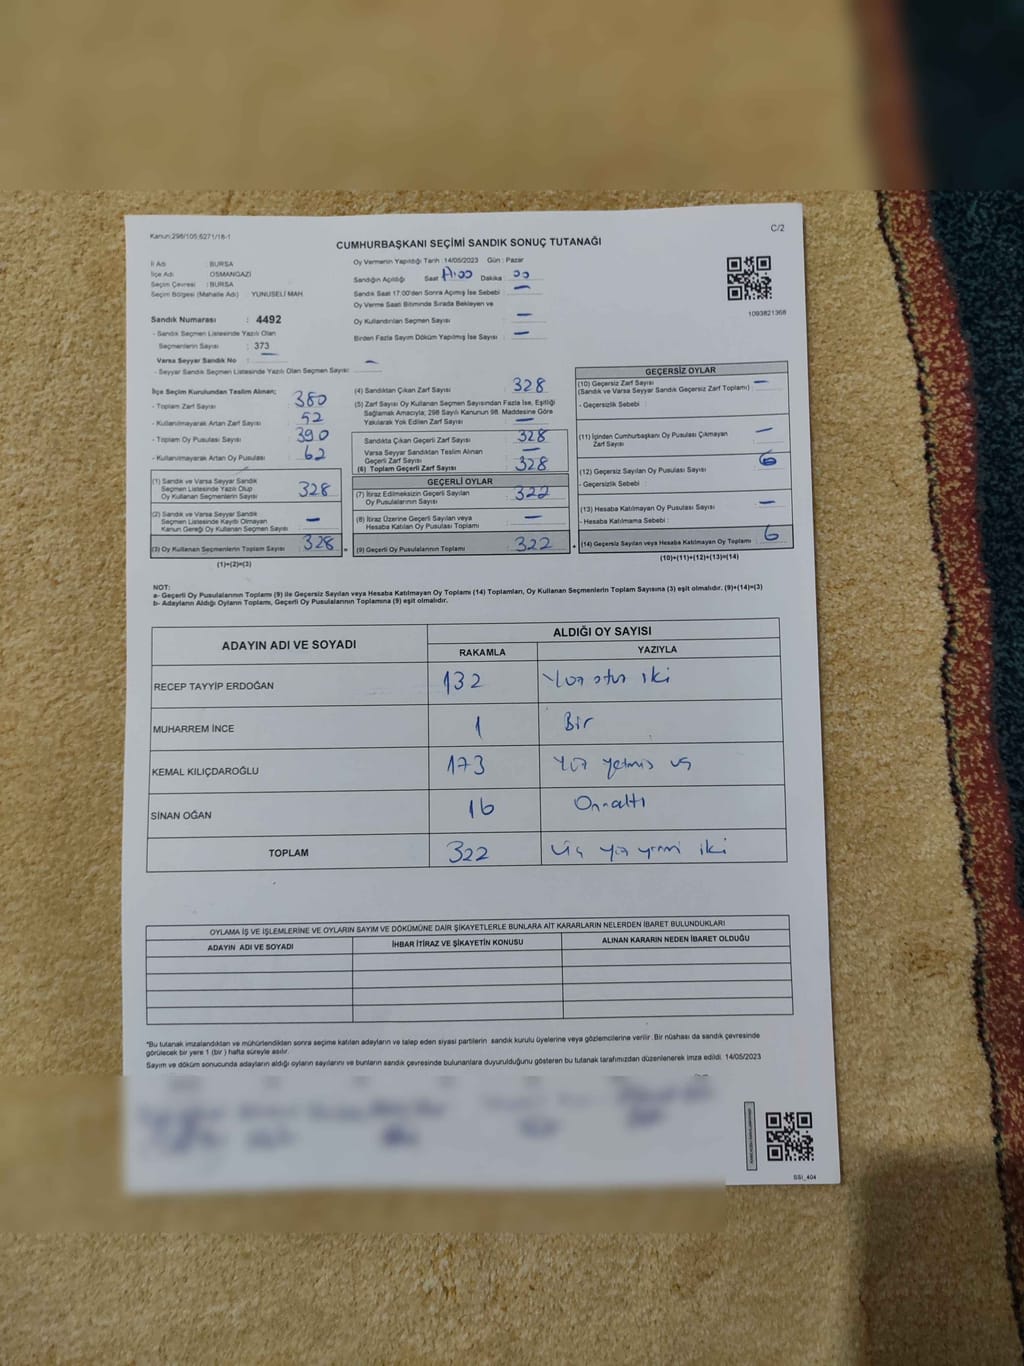 Kanun:298/105;6271/18-1
C/2
CUMHURBAŞKANI SEÇİMİ SANDIK SONUÇ TUTANAĞI
İl Adı : BURSA
İlçe Adı : OSMANGAZİ
Seçim Çevresi : BURSA
Seçim Bölgesi (Mahalle Adı) : YUNUSELİ MAH.
Sandık Numarası : 4492
- Sandık Seçmen Listesinde Yazılı Olan
Seçmenlerin Sayısı : 373
Varsa Seyyar Sandık No : —
- Seyyar Sandık Seçmen Listesinde Yazılı Olan Seçmen Sayısı: —
Oy Vermenin Yapıldığı Tarih :14/05/2023 Gün : Pazar
Sandığın Açıldığı Saat Dakika :
Sandık Saat 17:00'den Sonra Açılmış İse Sebebi : —
Oy Verme Saati Bitiminde Sırada Bekleyen ve
Oy Kullandırılan Seçmen Sayısı : —
Birden Fazla Sayım Döküm Yapılmış İse Sayısı : —
1093821368
İlçe Seçim Kurulundan Teslim Alınan;
- Toplam Zarf Sayısı : 380
- Kullanılmayarak Artan Zarf Sayısı : 52
- Toplam Oy Pusulası Sayısı : 390
- Kullanılmayarak Artan Oy Pusulası : 62
(1) Sandık ve Varsa Seyyar Sandık
Seçmen Listesinde Yazılı Olup
Oy Kullanan Seçmenlerin Sayısı : 328
(2) Sandık ve Varsa Seyyar Sandık
Seçmen Listesinde Kaydı Olmayan
Kanun Gereği Oy Kullanan Seçmen Sayısı : —
(3) Oy Kullanan Seçmenlerin Toplam Sayısı : 328
(1)+(2)=(3)
(4) Sandıktan Çıkan Zarf Sayısı : 328
(5) Zarf Sayısı Oy Kullanan Seçmen Sayısından Fazla İse, Eşitliği
Sağlamak Amacıyla; 298 Sayılı Kanunun 98. Maddesine Göre
Yakılarak Yok Edilen Zarf Sayısı : —
Sandıkta Çıkan Geçerli Zarf Sayısı : 328
Varsa Seyyar Sandıktan Teslim Alınan
Geçerli Zarf Sayısı : —
(6) Toplam Geçerli Zarf Sayısı : 328
GEÇERLİ OYLAR
(7) İtiraz Edilmeksizin Geçerli Sayılan
Oy Pusulalarının Sayısı : 322
(8) İtiraz Üzerine Geçerli Sayılan veya
Hesaba Katılan Oy Pusulası Toplamı : —
(9) Geçerli Oy Pusulalarının Toplamı : 322
GEÇERSİZ OYLAR
(10) Geçersiz Zarf Sayısı : —
(Sandık ve Varsa Seyyar Sandık Geçersiz Zarf Toplamı)
- Geçersizlik Sebebi :
(11) İçinden Cumhurbaşkanı Oy Pusulası Çıkmayan
Zarf Sayısı : —
(12) Geçersiz Sayılan Oy Pusulası Sayısı : 6
- Geçersizlik Sebebi :
(13) Hesaba Katılmayan Oy Pusulası Sayısı : —
- Hesaba Katılmama Sebebi :
(14) Geçersiz Sayılan veya Hesaba Katılmayan Oy Toplamı : 6
(10)+(11)+(12)+(13)=(14)
NOT:
a- Geçerli Oy Pusulalarının Toplamı (9) ile Geçersiz Sayılan veya Hesaba Katılmayan Oy Toplamı (14) Toplamları, Oy Kullanan Seçmenlerin Toplam Sayısına (3) eşit olmalıdır. (9)+(14)=(3)
b- Adayların Aldığı Oyların Toplamı, Geçerli Oy Pusulalarının Toplamına (9) eşit olmalıdır.
ADAYIN ADI VE SOYADI
ALDIĞI OY SAYISI
RAKAMLA YAZIYLA
RECEP TAYYİP ERDOĞAN 132 Yüz otuz iki
MUHARREM İNCE 1 Bir
KEMAL KILIÇDAROĞLU 173 Yüz yetmiş üç
SİNAN OĞAN 16 Onaltı
TOPLAM 322 Üç yüz yirmi iki
OYLAMA İŞ VE İŞLEMLERİNE VE OYLARIN SAYIM VE DÖKÜMÜNE DAİR ŞİKAYETLERLE BUNLARA AİT KARARLARIN NELERDEN İBARET BULUNDUKLARI
ADAYIN ADI VE SOYADI İHBAR İTİRAZ VE ŞİKAYETİN KONUSU ALINAN KARARIN NEDEN İBARET OLDUĞU
*Bu tutanak imzalandıktan ve mühürlendikten sonra seçime katılan adayların ve talep eden siyasi partilerin sandık kurulu üyelerine veya gözlemcilerine verilir. Bir nüshası da sandık çevresinde
görülecek bir yere 1 (bir ) hafta süreyle asılır.
Sayım ve döküm sonucunda adayların aldığı oyların sayılarını ve bunların sandık çevresinde bulunanlara duyurulduğunu gösteren bu tutanak tarafımızdan düzenlenerek imza edildi. 14/05/2023
SSI_404